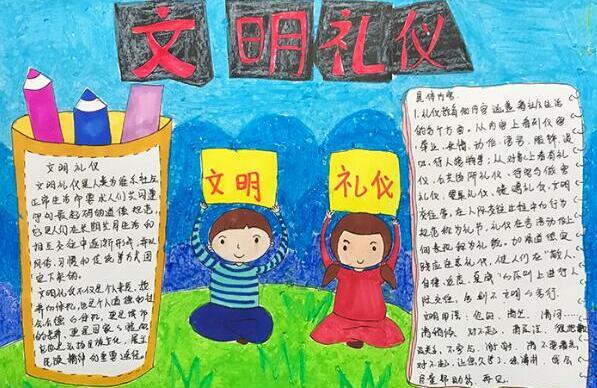 文明礼仪
文明
礼仪
文明 礼仪
文明礼仪是人类为维系社会
正常生活而要求人们共同遵
守的最起码的道德规范,
它是人们在长期共同生活和
相互交往中逐渐形成,并以
风俗、习惯和传统等方式固
定下来的。
文明礼仪不仅是个人素质、教
养的体现,也是个人道德和社
会公德的体现。更是城市
的脸面,更是国家的脸面
弘扬民族文化、展示
民族精神的重要途径。
具体内容:
1.礼仪教育的内容涵盖着社会生活
的各个方面。从内容上看有仪容、
举止、表情、服饰、谈
吐、待人接物等;从对象上看有个人礼
仪、公共场所礼仪、待客与做客
礼仪、餐桌礼仪、馈赠礼仪、文明
交往等。在人际交往过程中的行为
规范称为礼节,礼仪在言语动作上
的表现称为礼貌。加强道德实
践应注意礼仪,使人们在"敬人、
自律、适度、真诚"的原则上进行人
际交往,告别不文明的言行。
文明用语:您好、请
对不起、
谢谢、
对不起、让您久等了、
再见。